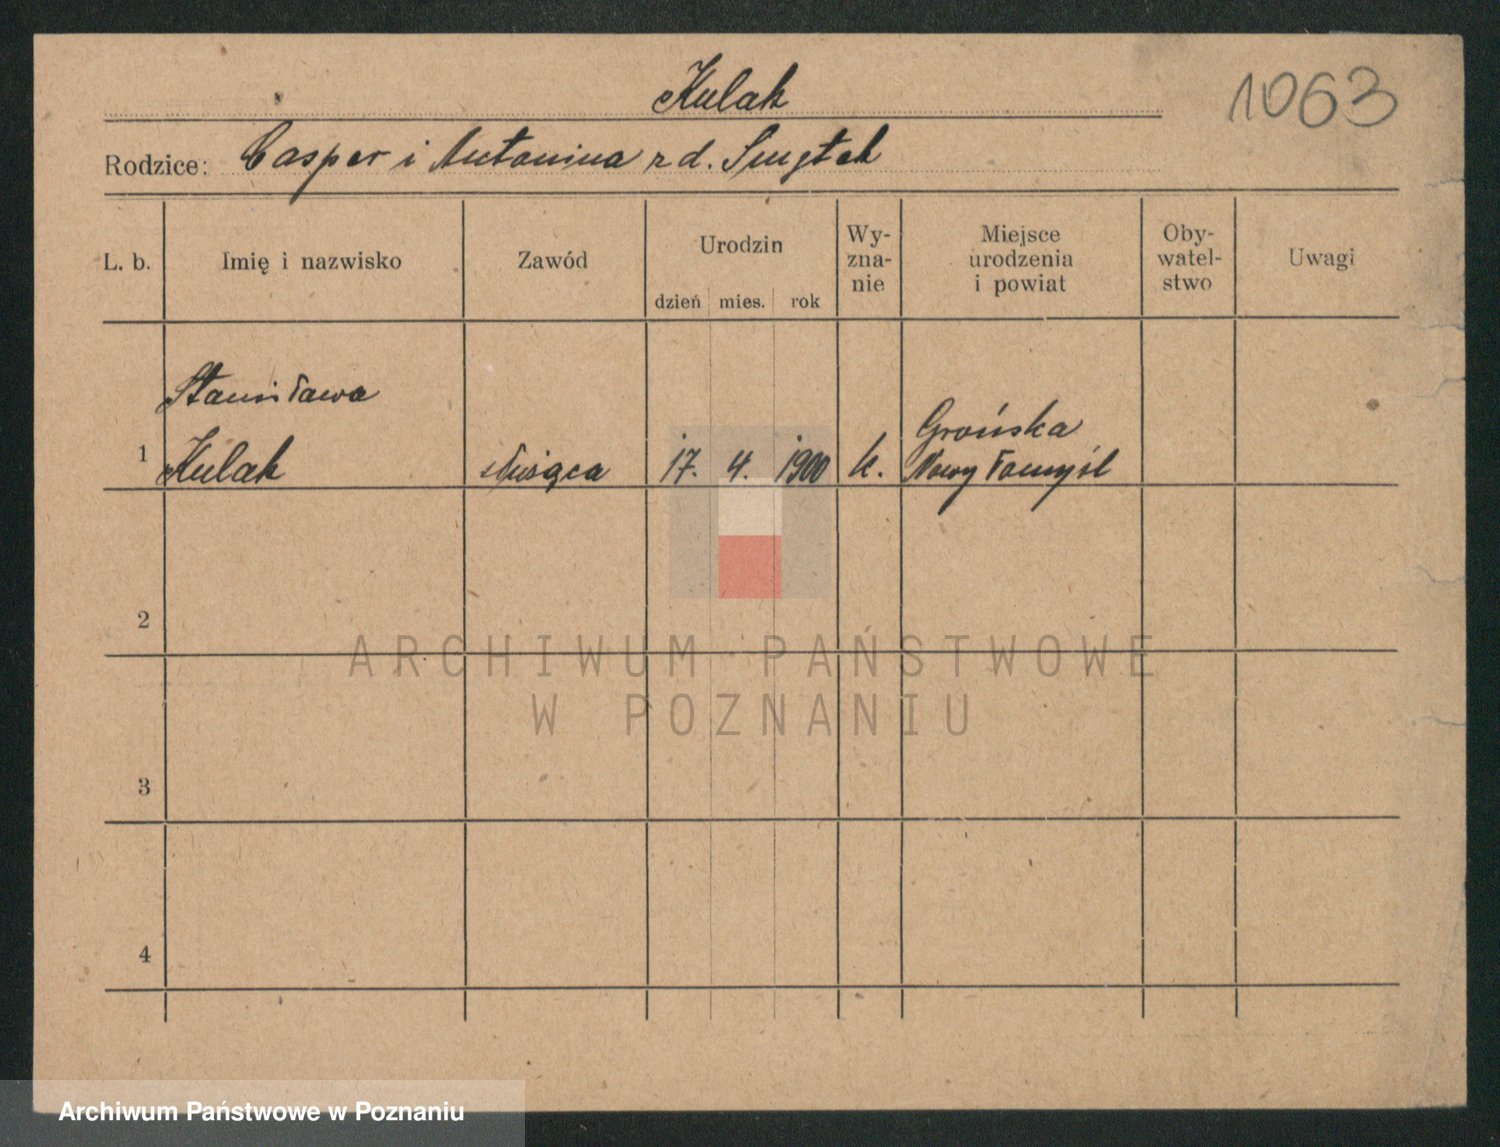 Kulak
1063
Rodzice: Casper i Antonina z d. Smętek
L. b.
Imię i nazwisko
Zawód
Urodzin
dzień mies. rok
Wy-
zna-
nie
Miejsce
urodzenia
i powiat
Oby-
watel-
stwo
Uwagi
Stanisława
1 Kulak służąca 17. 4. 1900 k. Grońska
Nowy Tomyśl
2
3
4
ARCHIWUM PAŃSTWOWE
W POZNANIU
Archiwum Państwowe w Poznaniu